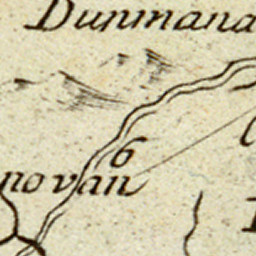 Dunmana
6
novan